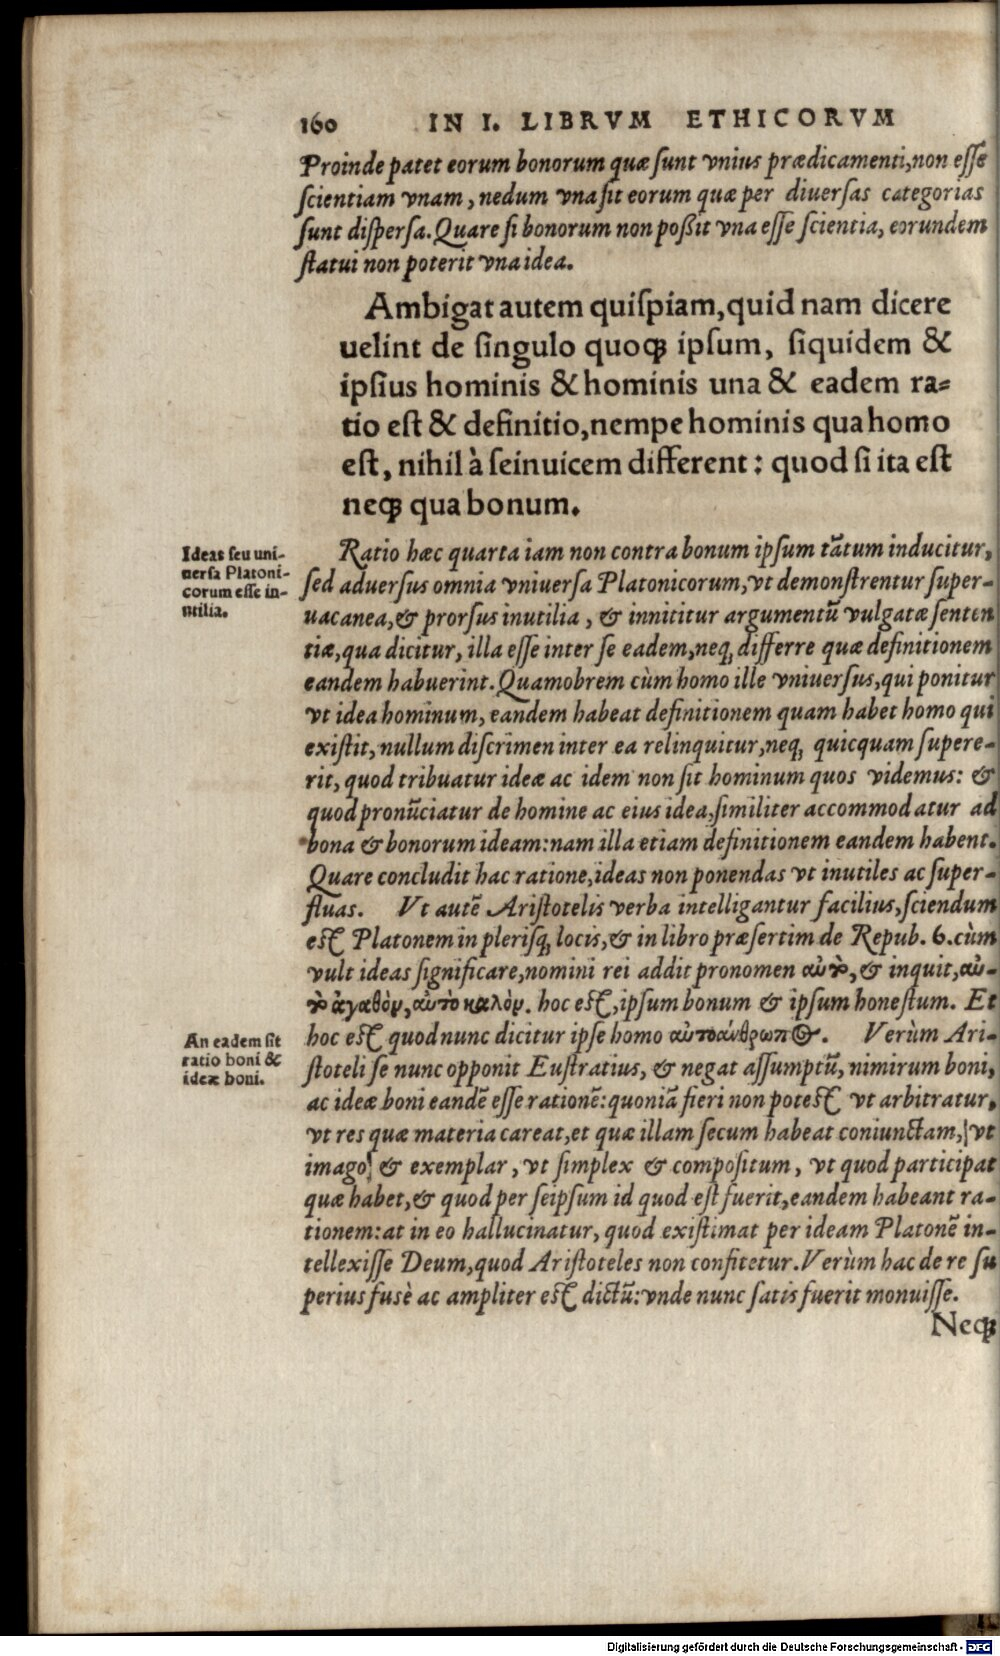 160 IN I. LIBRVM ETHICORVM
Proinde patet eorum bonorum quæ ſunt vnius prædicamenti, non eſſe
ſcientiam vnam, nedum vna ſit eorum quæ per diuerſas categorias
ſunt diſperſa. Quare ſi bonorum non poßit vna eſſe ſcientia, eorundem
ſtatui non poterit vna idea.
Ambigat autem quiſpiam, quid nam dicere
uelint de ſingulo quoqꝫ ipſum, ſiquidem &
ipſius hominis & hominis una & eadem ra⸗
tio eſt & definitio, nempe hominis qua homo
eſt, nihil à ſeinuicem different: quod ſi ita eſt
neqꝫ qua bonum.
Ideas ſeu uni-
uerſa Platoni-
corum eſſe in-
utilia.
Ratio hæc quarta iam non contra bonum ipſum tãtum inducitur,
ſed aduerſus omnia vniuerſa Platonicorum, vt demonſtrentur ſuper-
uacanea, & prorſus inutilia, & innititur argumentũ vulgatæ ſenten
tiæ, qua dicitur, illa eſſe inter ſe eadem, neqꝫ differre quæ definitionem
eandem habuerint. Quamobrem cùm homo ille vniuerſus, qui ponitur
vt idea hominum, eandem habeat definitionem quam habet homo qui
exiſtit, nullum diſcrimen inter ea relinquitur, neqꝫ quicquam ſupere-
rit, quod tribuatur ideæ ac idem non ſit hominum quos videmus: &
quod pronũciatur de homine ac eius idea, ſimiliter accommodatur ad
bona & bonorum ideam: nam illa etiam definitionem eandem habent.
Quare concludit hac ratione, ideas non ponendas vt inutiles ac ſuper-
fluas. Vt autẽ Ariſtotelis verba intelligantur facilius, ſciendum
eſt Platonem in pleriſqꝫ locis, & in libro præſertim de Repub. 6. cùm
vult ideas ſignificare, nomini rei addit pronomen αὐτὸ, & inquit, αὐ-
τὸ ἀγαθὸν, αὐτὸ καλὸν. hoc eſt, ipſum bonum & ipſum honeſtum. Et
hoc eſt quod nunc dicitur ipſe homo αὐτοάνθρωπος. Verùm Ari-
An eadem ſit
ratio boni &
ideæ boni.
ſtoteli ſe nunc opponit Euſtratius, & negat aſſumptũ, nimirum boni,
ac ideæ boni eandẽ eſſe rationẽ: quoniã fieri non poteſt vt arbitratur,
vt res quæ materia careat, et quæ illam ſecum habeat coniunctam, vt
imago & exemplar, vt ſimplex & compoſitum, vt quod participat
quæ habet, & quod per ſeipſum id quod eſt fuerit, eandem habeant ra-
tionem: at in eo hallucinatur, quod exiſtimat per ideam Platonẽ in-
tellexiſſe Deum, quod Ariſtoteles non confitetur. Verùm hac de re ſu
perius fusè ac ampliter eſt dictũ: vnde nunc ſatis fuerit monuiſſe.
Neqꝫ
Digitalisierung gefördert durch die Deutsche Forschungsgemeinschaft - DFG